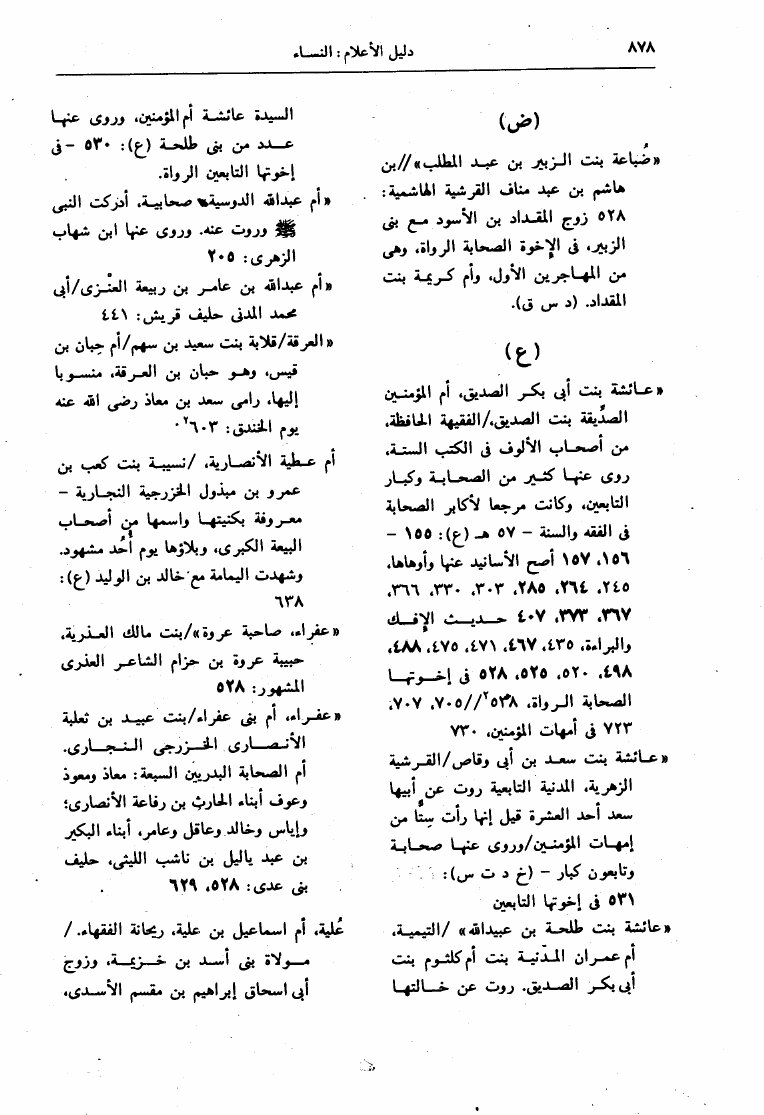 ٨٧٨
دليل الأعلام : النساء
(ض)
«ضُباعة بنت الزبير بن عبد المطلب»//بن
هاشم بن عبد مناف القرشية الهاشمية :
٥٢٨ زوج المقداد بن الأسود مع بنى
الزبير، فى الإخوة الصحابة الرواة، وهى
من المهاجرين الأول، وأم كريمة بنت
المقداد. (د س ق).
(ع)
«عائشة بنت أبى بكر الصديق، أم المؤمنين
الصدِّيقة بنت الصديق،/الفقيهة الحافظة،
من أصحاب الألوف فى الكتب الستة،
روى عنها كثير من الصحابة وكبار
التابعين، وكانت مرجعا لأكابر الصحابة
فى الفقه والسنة – ٥٧ هـ (ع): ١٥٥ –
١٥٦، ١٥٧ أصح الأسانيد عنها وأوهاها،
٢٤٥، ٢٦٤، ٢٨٥، ٣٠٣، ٣٣٠، ٣٦٦،
٣٦٧، ٣٧٣، ٤٠٧ حديث الإفك
والبراءة، ٤٣٥، ٤٦٧، ٤٧١، ٤٧٥، ٤٨٨،
٤٩٨، ٥٢٠، ٥٢٥، ٥٢٨ فى إخوتها
الصحابة الرواة، ٥٣٨٢//٧٠٥، ٧٠٧،
٧٢٣ فى أمهات المؤمنين، ٧٣٠
«عائشة بنت سعد بن أبى وقاص/القرشية
الزهرية، المدنية التابعية روت عن أبيها
سعد أحد العشرة قيل إنها رأت ستًّا من
إمهات المؤمنين/وروى عنها صحابة
وتابعون كبار – (خ د ت س):
٥٣١ فى إخوتها التابعين
«عائشة بنت طلحة بن عبيدالله» /التيمية،
أم عمران المدنية بنت أم كلثوم بنت
أبى بكر الصديق. روت عن خالتها
السيدة عائشة أم المؤمنين، وروى عنها
عدد من بنى طلحة (ع): ٥٣٠ – فى
إخوتها التابعين الرواة.
«أم عبدالله الدوسية» صحابية، أدركت النبى
ﷺ وروت عنه. وروى عنها ابن شهاب
الزهرى : ٢٠٥
«أم عبدالله بن عامر بن ربيعة العنْزى/أبى
محمد المدنى حليف قريش : ٤٤١
«العرقة/قلابة بنت سعيد بن سهم/أم حِبان بن
قيس، وهو حبان بن العرقة، منسوبا
إليها، رامى سعد بن معاذ رضى الله عنه
يوم الخندق : ٦٠٣٢
أم عطية الأنصارية، /نسيبة بنت كعب بن
عمرو بن مبذول الخزرجية النجارية –
معروفة بكنيتها واسمها من أصحاب
البيعة الكبرى، وبلاؤها يوم أُحُد مشهود.
وشهدت اليمامة مع خالد بن الوليد (ع):
٦٣٨
«عفراء، صاحبة عروة»/بنت مالك العذرية،
حبيبة عروة بن حزام الشاعر العذرى
المشهور : ٥٢٨
«عفراء، أم بنى عفراء/بنت عبيد بن ثعلبة
الأنصارى الخزرجى النجارى.
أم الصحابة البدريين السبعة : معاذ ومعوذ
وعوف أبناء الحارث بن رفاعة الأنصارى؛
وإياس وخالد وعاقل وعامر، أبناء البكير
بن عبد ياليل بن ناشب الليثى، حليف
بنى عدى : ٥٢٨، ٦٢٩
عُلية، أم اسماعيل بن علية، ريحانة الفقهاء. /
مولاة بنى أسد بن خزيمة، وزوج
أبى اسحاق إبراهيم بن مقسم الأسدى،